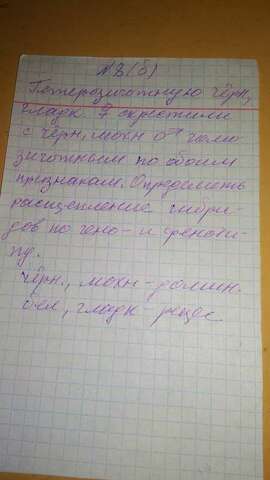 №8(б)
Гетерозиготную чёрн,
гладк. ♀ скрестили
с чёрн, мохн ♂ гомо
зиготным по обоим
признакам. Определить
расщепление гибри
дов по гено- и феноти-
пу.
чёрн., мохн - домин.
бел, гладк - рецес